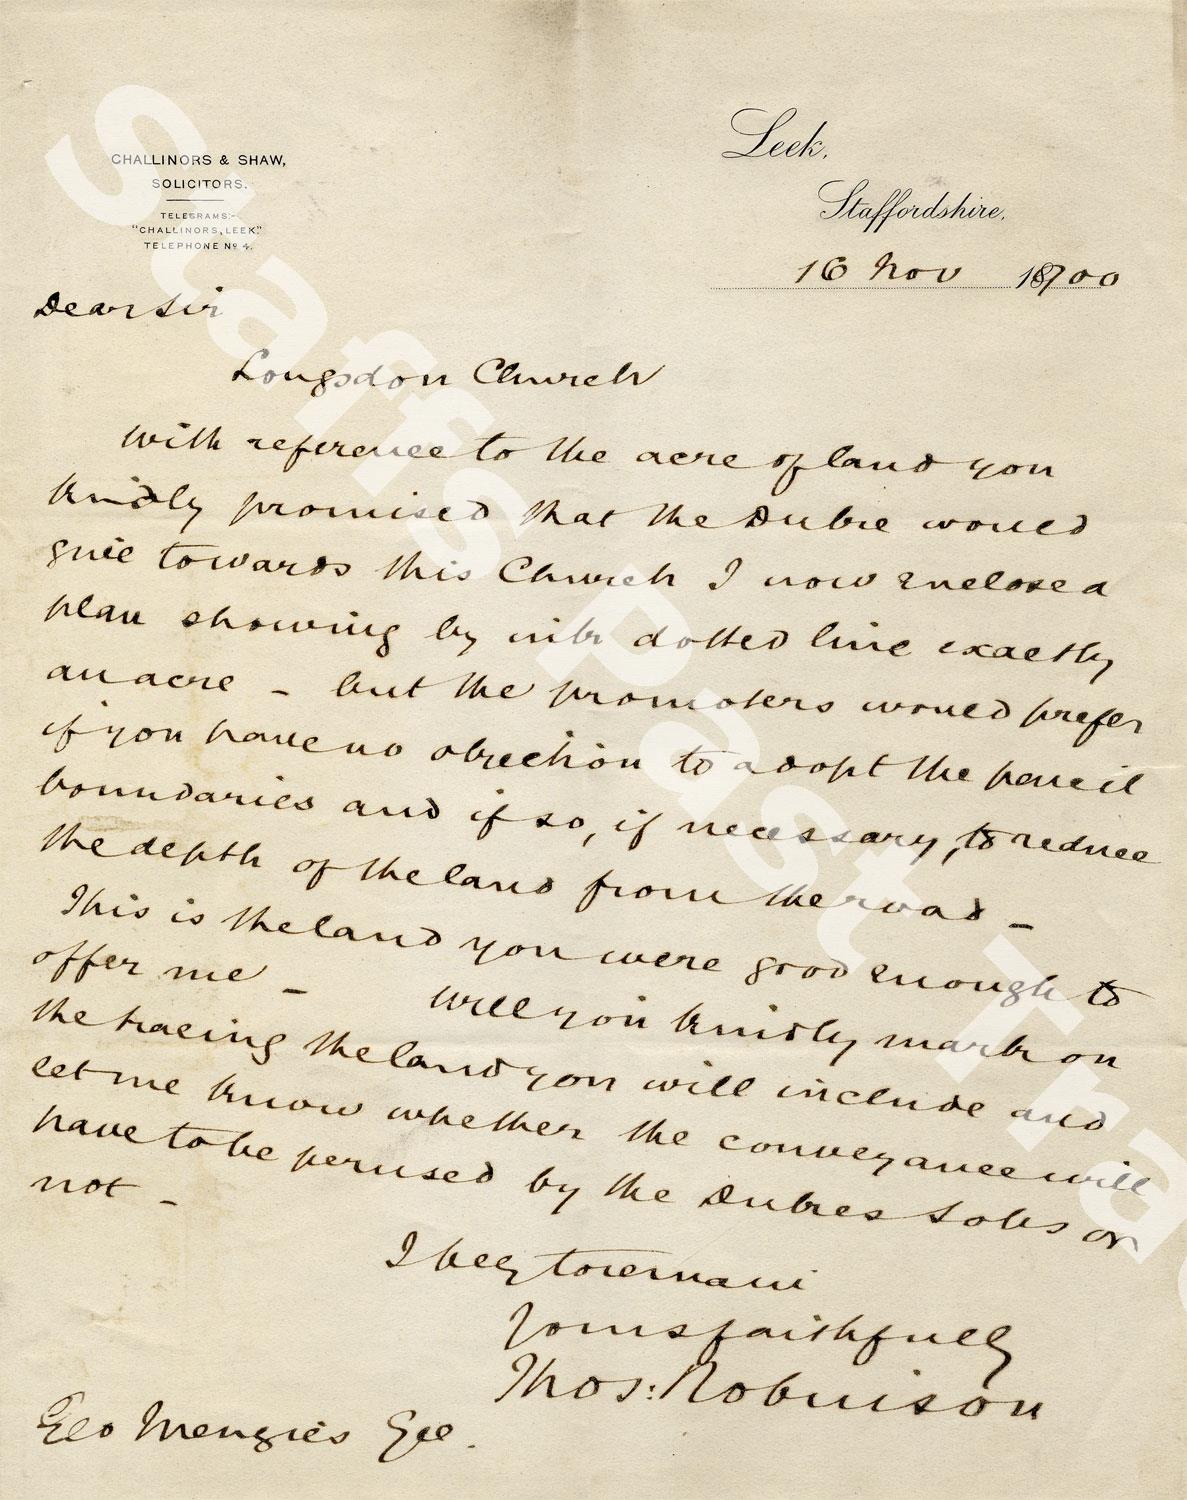 CHALLINORS & SHAW,
SOLICITORS.
TELEGRAMS:-
"CHALLINORS, LEEK."
TELEPHONE No 4.
Leek,
Staffordshire.
16 Nov 1900
Dear Sir
Longsdon Church
With reference to the acre of land you
kindly promised that the Duke would
give towards this Church I now enclose a
plan showing by ink dotted line exactly
an acre - but the promoters would prefer
if you have no objection to adopt the pencil
boundaries and if so, if necessary, to reduce
the depth of the land from the road -
This is the land you were good enough to
offer me - Will you kindly mark on
the tracing the land you will include and
let me know whether the conveyance will
have to be perused by the Dukes Solrs or
not -
I beg to remain
Yours faithfully
Thos: Robinson
Geo Menzies Esq.
Staffs Past Tra